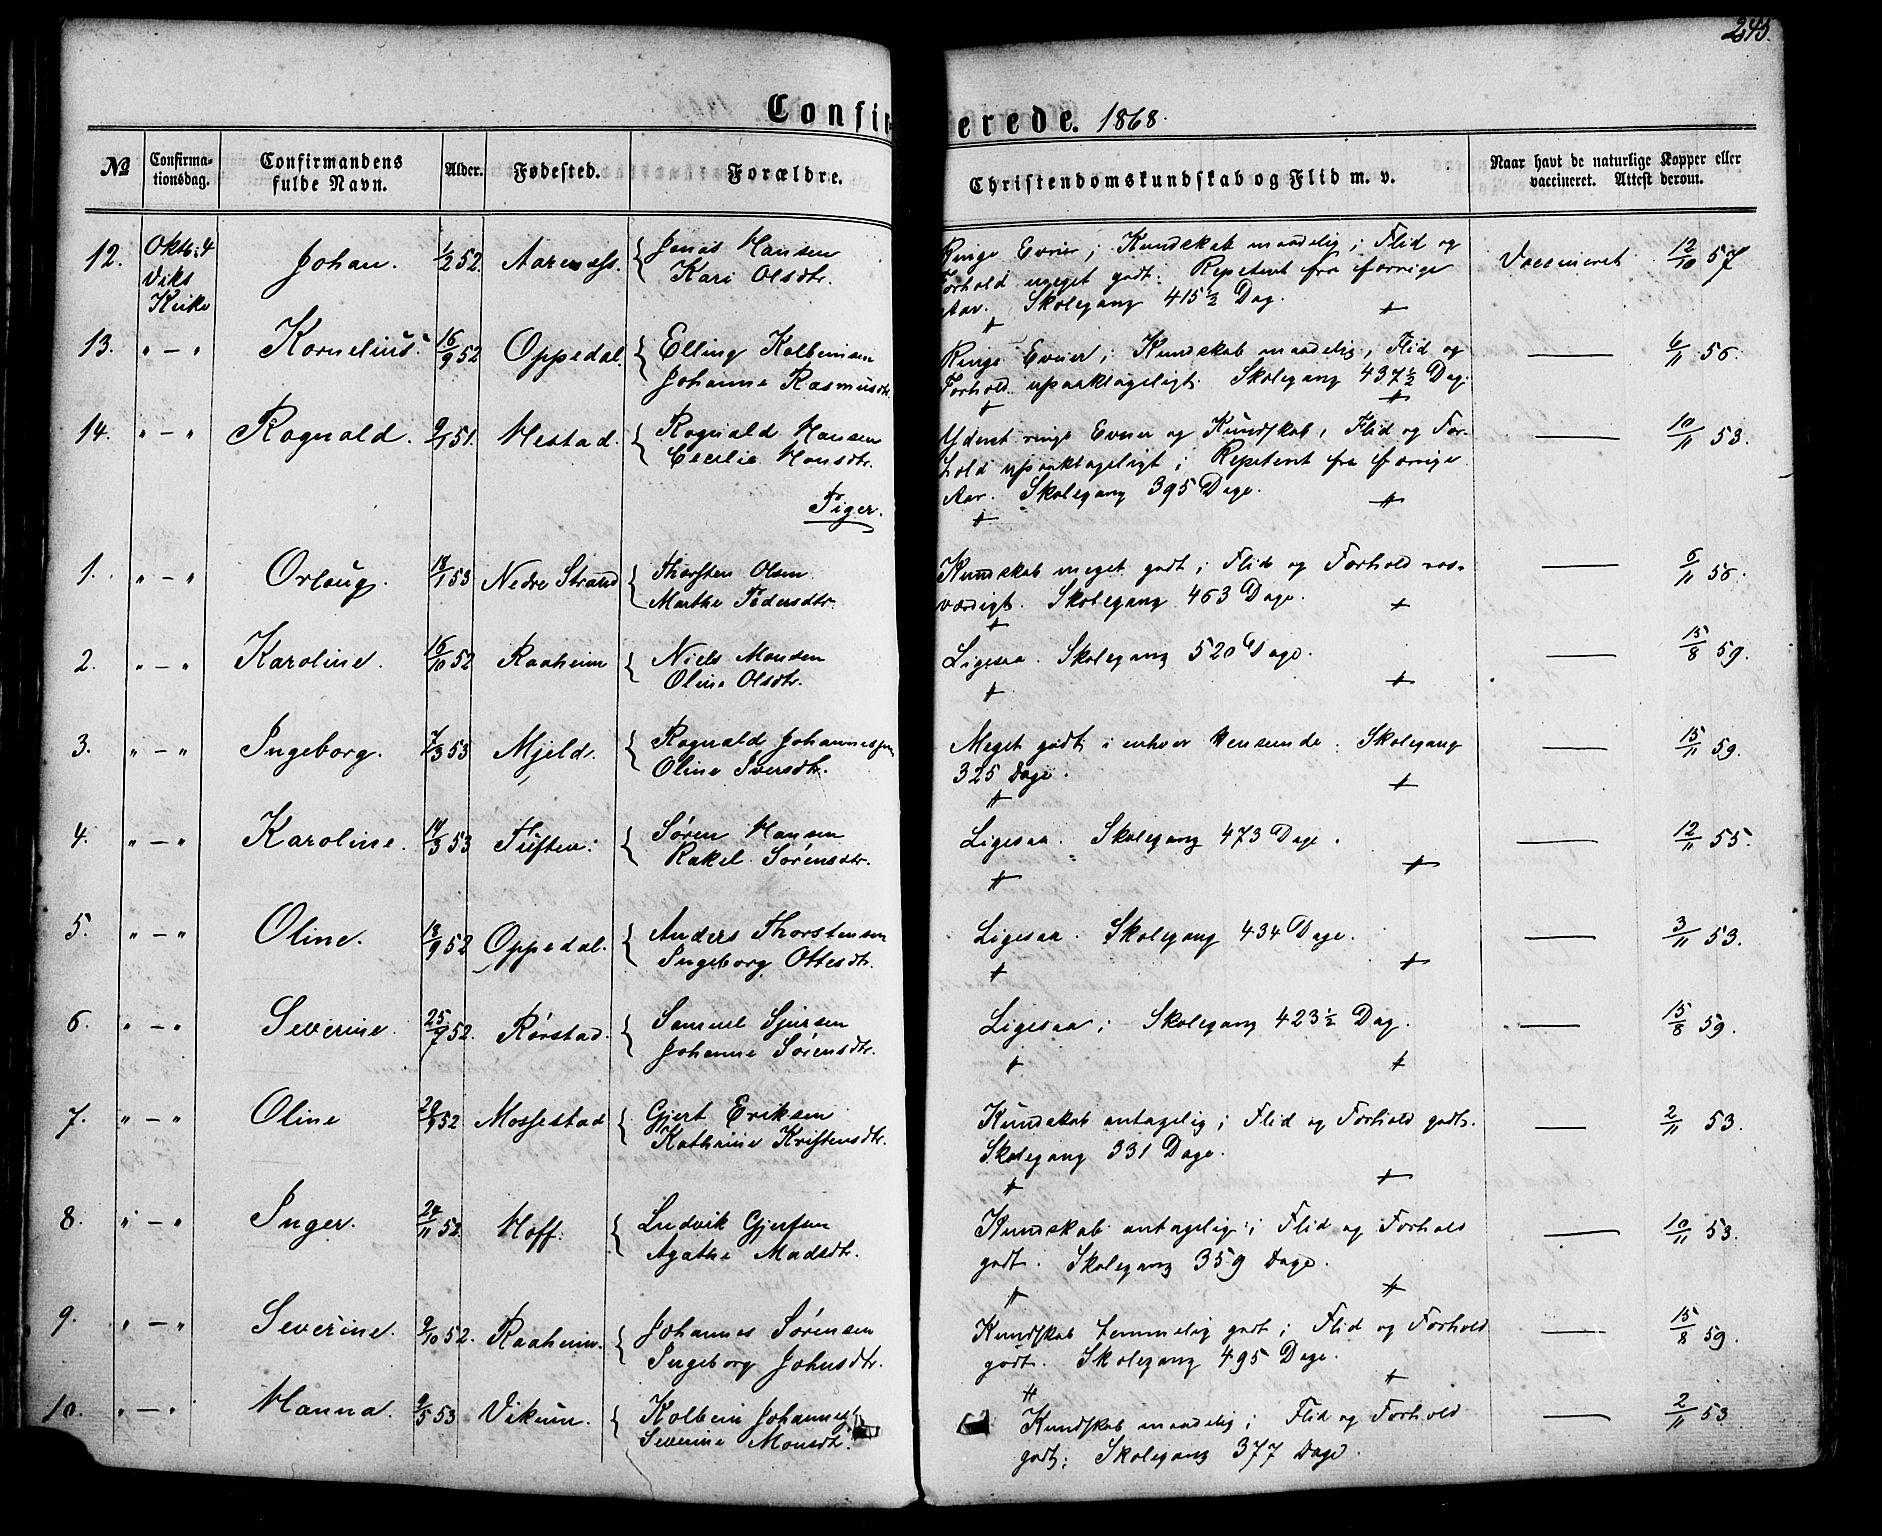 245.
Confirmerede. 1868.
No Confirmationsdag. Confirmandens fulde Navn. Alder. Fødested. Forældre. Christendomskundskab og Flid m. v. Naar havt de naturlige Kopper eller vaccineret. Attest derom.
12. Oktb. 4 Johan. 1/2 52. { Jonas Hansen Ringe Evner; Kundskab maadelig; Flid og Vaccineret 12/10 57
Viks Kari Olsdtr. Forhold meget godt. Repetent fra forrige
Kirke Aar. Skolegang 415 1/2 Dag.
13. " — " Kornelius. 16/9 52 Oppedal. { Elling Kolbeinsen Ringe Evner; Kundskab maadelig, Flid og — 6/11 56.
Johanne Rasmusdtr. Forhold upaaklageligt. Skolegang 437 1/2 Dag.
14. " — " Rognald. 9/1 51. Hestad. { Rognald Hansen Yderst ringe Evner og Kundskab, Flid og For- — 10/11 53.
Cecilie Hansdtr. hold upaaklageligt; Repetent fra forrige
Piger. Aar. Skolegang 395 Dage.
1. " — " Orlaug. 18/1 53 Nedre Strand { Thorsten Olsen Kundskab meget godt; Flid og Forhold ros- — 6/11 56.
Marthe Pedersdtr. værdigt. Skolegang 463 Dage.
2. " — " Karoline. 16/10 52 Raaheim { Niels Monsen Ligesaa. Skolegang 520 Dage. — 15/8 59.
Oline Olsdtr.
3. " — " Ingeborg. 7/3 53 Mjeld. { Rognald Johannessen Meget godt i enhver Henseende. Skolegang — 15/11 59.
Oline Iversdtr. 325 Dage.
4. " — " Karoline. 14/3 53 Tuften. { Søren Hansen Ligesaa. Skolegang 473 Dage. — 12/11 55.
Rakel Sørensdtr.
5. " — " Oline. 13/9 52 Oppedal. { Anders Thorstensen Ligesaa. Skolegang 434 Dage. — 3/11 53.
Ingeborg Ottesdtr.
6. " — " Severine. 25/7 52. Rørstad. { Samuel Sjursen Ligesaa; Skolegang 423 1/2 Dag. — 15/8 59.
Johanne Sørensdtr.
7. " — " Oline 52 Mossestad { Gjert Eriksen Kundskab antagelig; Flid og Forhold godt. — 2/11 53.
Kathrine Kristensdtr. Skolegang 331 Dage.
8. " — " Inger. 24/11 52. Hoff. { Ludvik Gjertsen Kundskab antagelig; Flid og Forhold — 10/11 53.
Agathe Madsdtr. godt. Skolegang 359 Dage.
9. " — " Severine. 9/10 52. Raaheim. { Johannes Sørensen Kundskab temmelig godt; Flid og Forhold — 15/8 59.
Ingeborg Johnsdtr. godt. Skolegang 495 Dage.
10. " — " Hanna. 9/5 53 Vikum. { Kolbein Johannes Kundskab maadelig; Flid og Forhold — 2/11 53
Severine Monsdtr. godt; Skolegang 377 Dage.